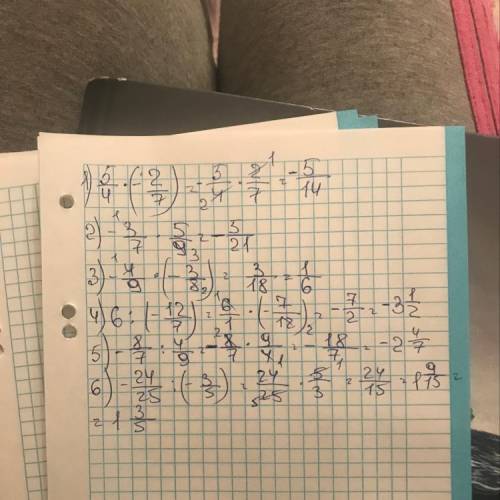 1) 5/4 · (-2/7) = -5/4 · 2/7 = -5/14
2) -3/7 · 5/9 = -5/21
3) -4/9 · (-3/8) = 3/18 = 1/6
4) 6 : (-12/7) = 6/1 · (-7/12) = -7/2 = -3 1/2
5) -8/7 : 4/9 = -8/7 · 9/4 = -18/7 = -2 4/7
6) -24/25 : (-3/5) = 24/25 · 5/3 = 24/15 = 1 9/15 =
= 1 3/5